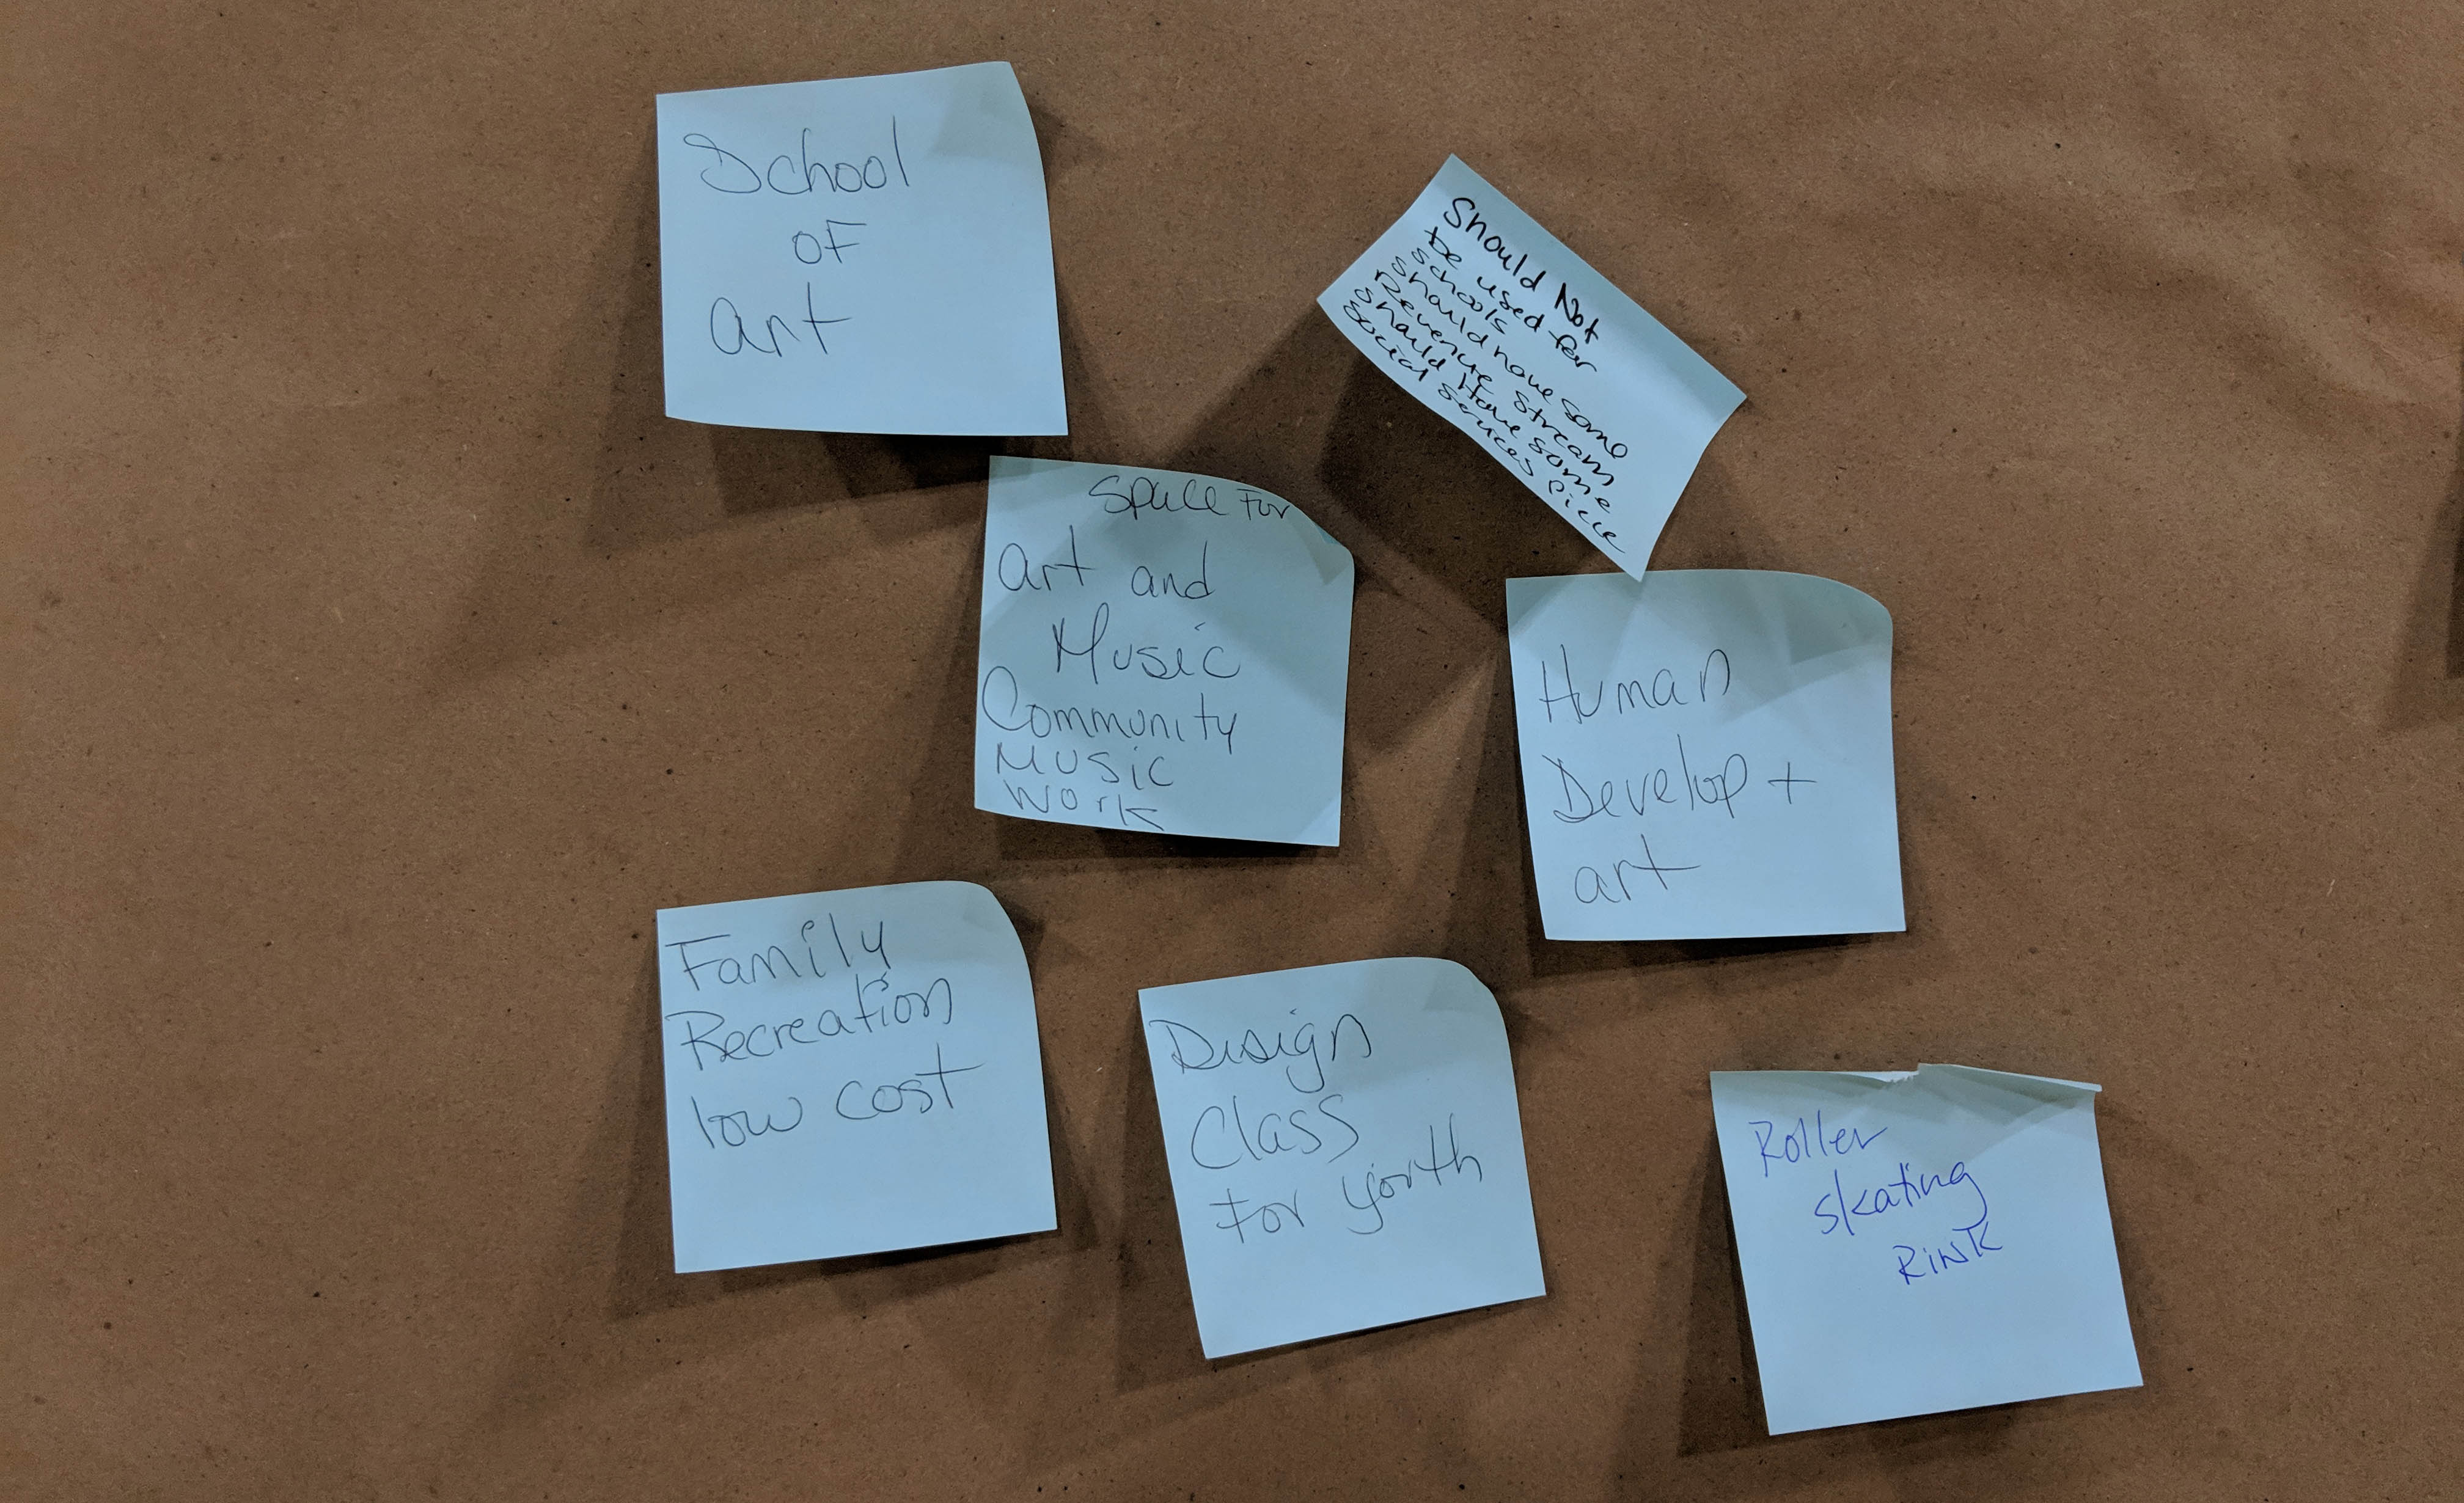 School
OF
art
Should Not
be used for
schools
should have some
Revenue Stream
should Have some
social services piece
Space For
Art and
Music
Community
Music
Work
Human
Develop +
art
Family
Recreation
low cost
Design
Class
For youth
Roller
skating
Rink